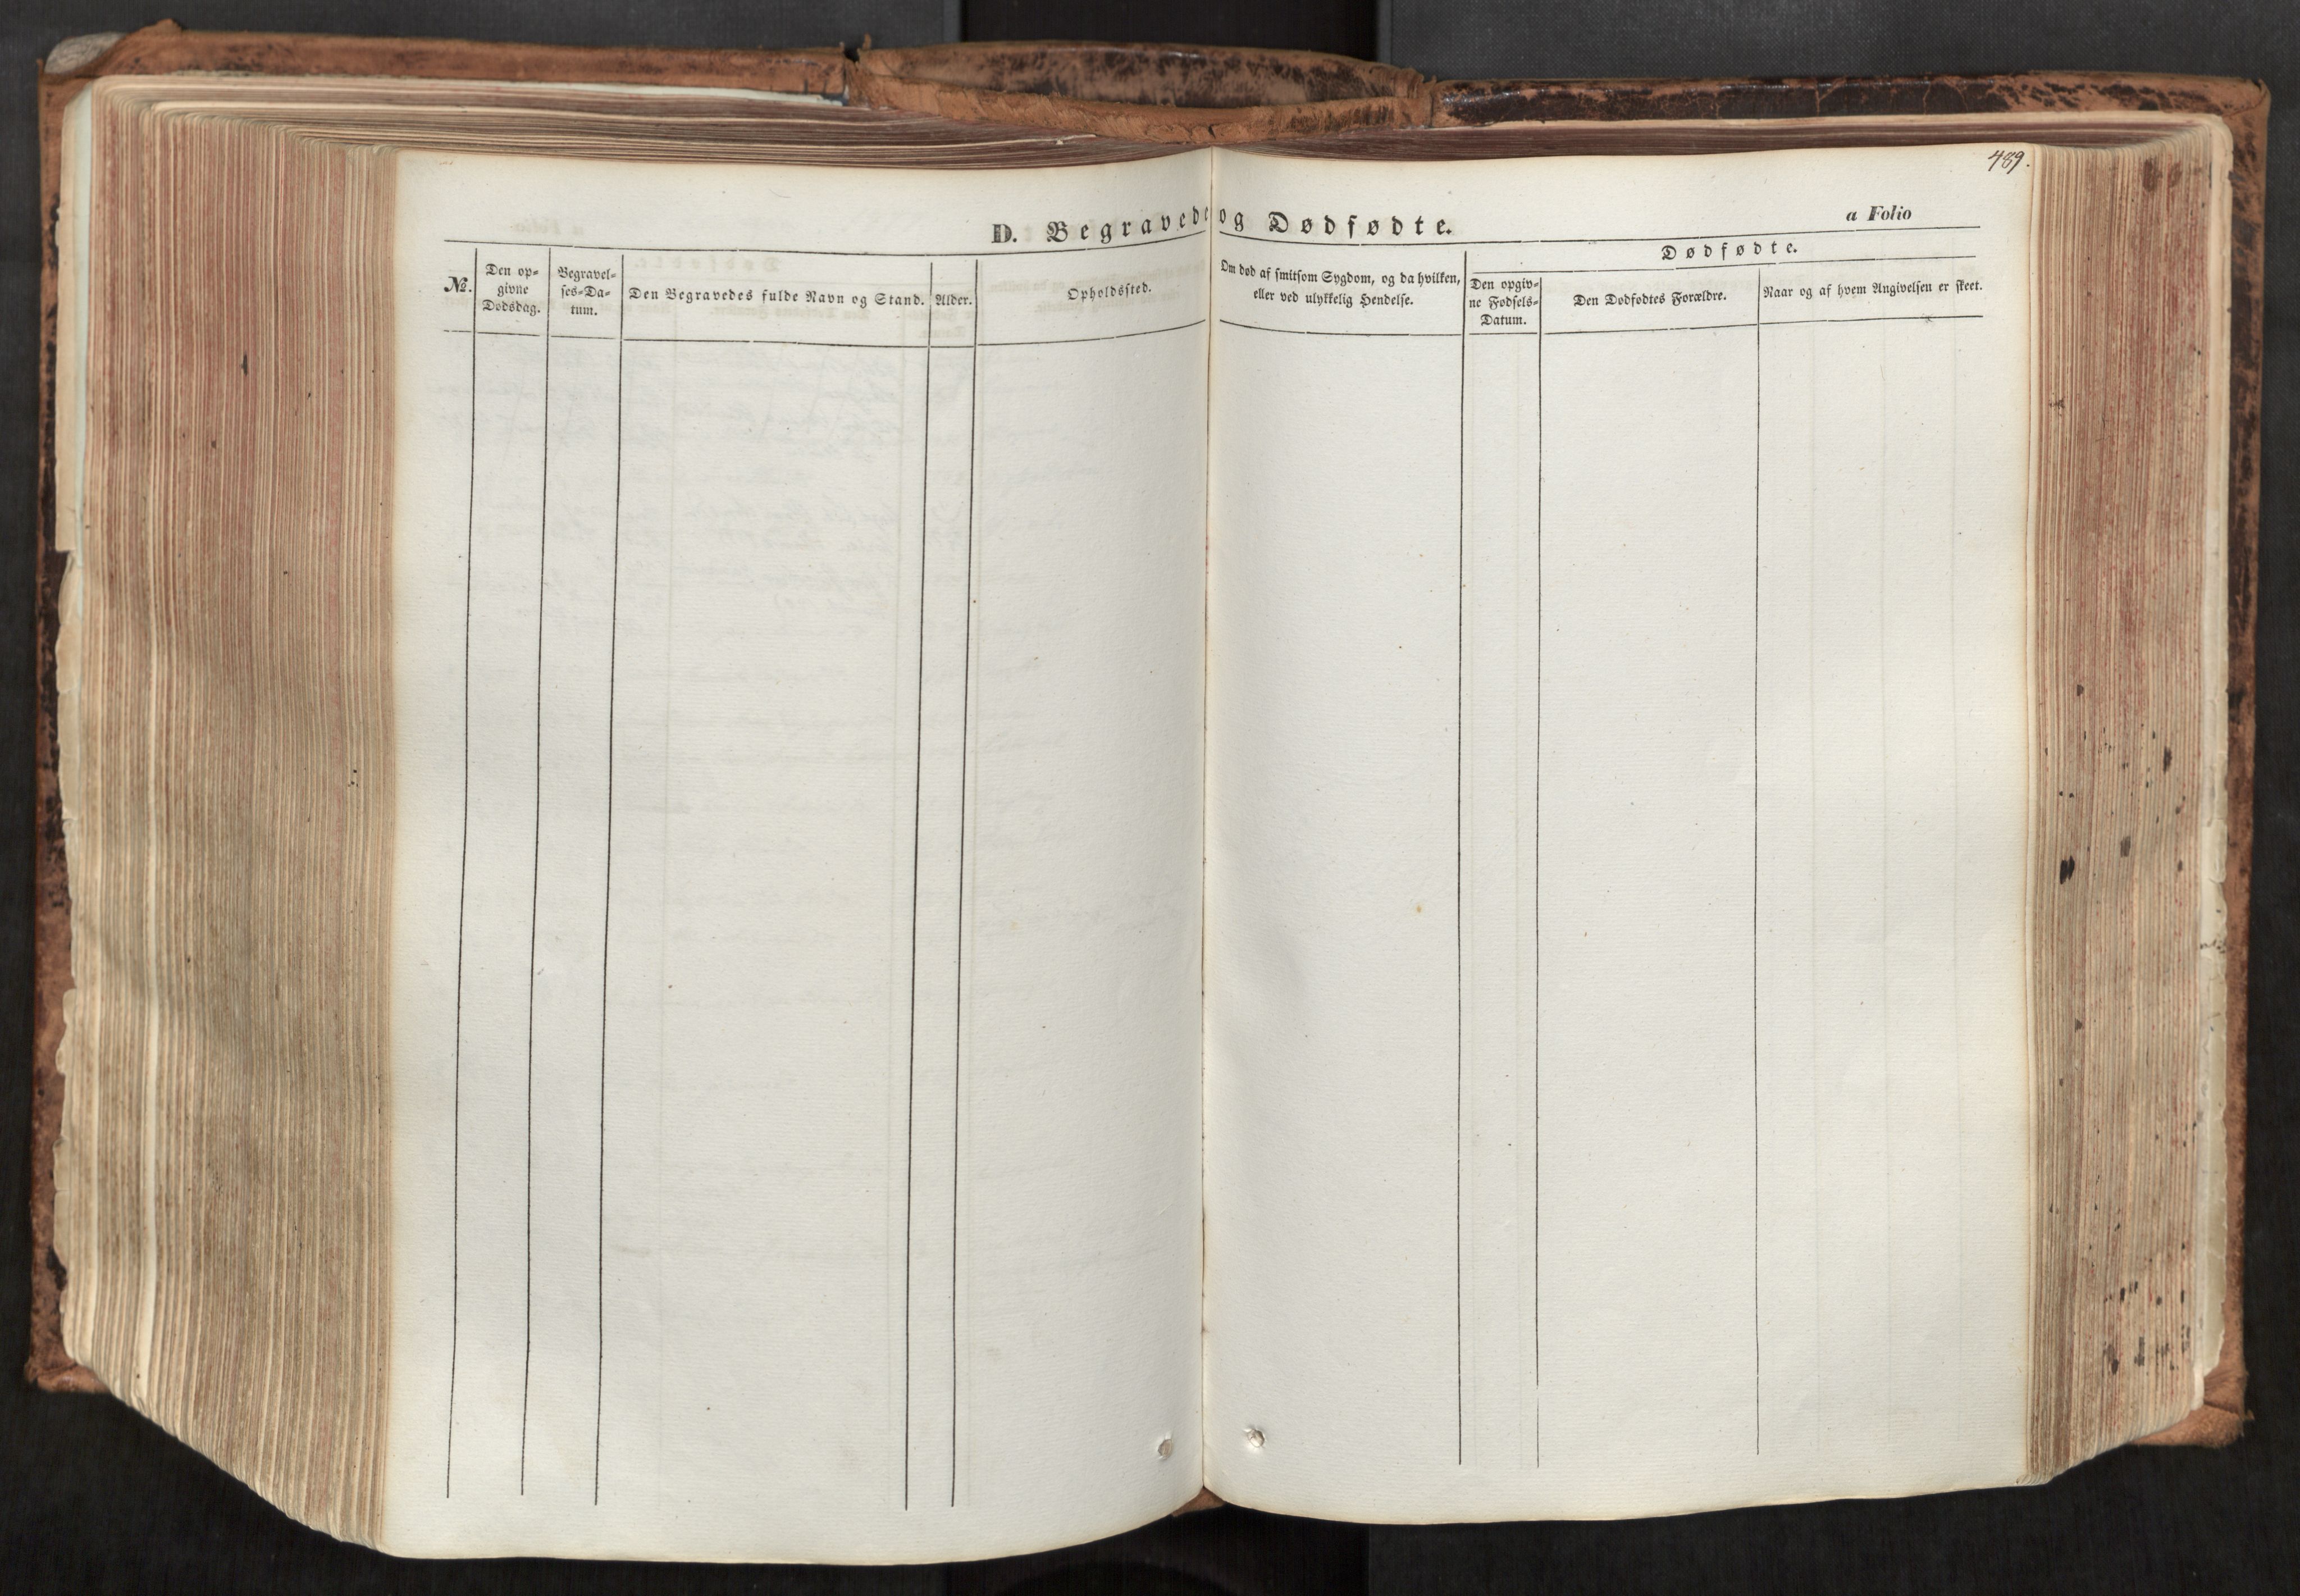 489.
D. Begravede og Dødfødte.
a Folio
Dødfødte.
No.
Den op=
givne
Dødsdag.
Begravel=
ses=Da=
tum.
Den Begravedes fulde Navn og Stand.
Alder.
Opholdssted.
Om død af smitsom Sygdom, og da hvilken,
eller ved ulykkelig Hendelse.
Den opgiv=
ne Fødsels=
Datum.
Den Dødfødtes Forældre.
Naar og af hvem Angivelsen er skeet.